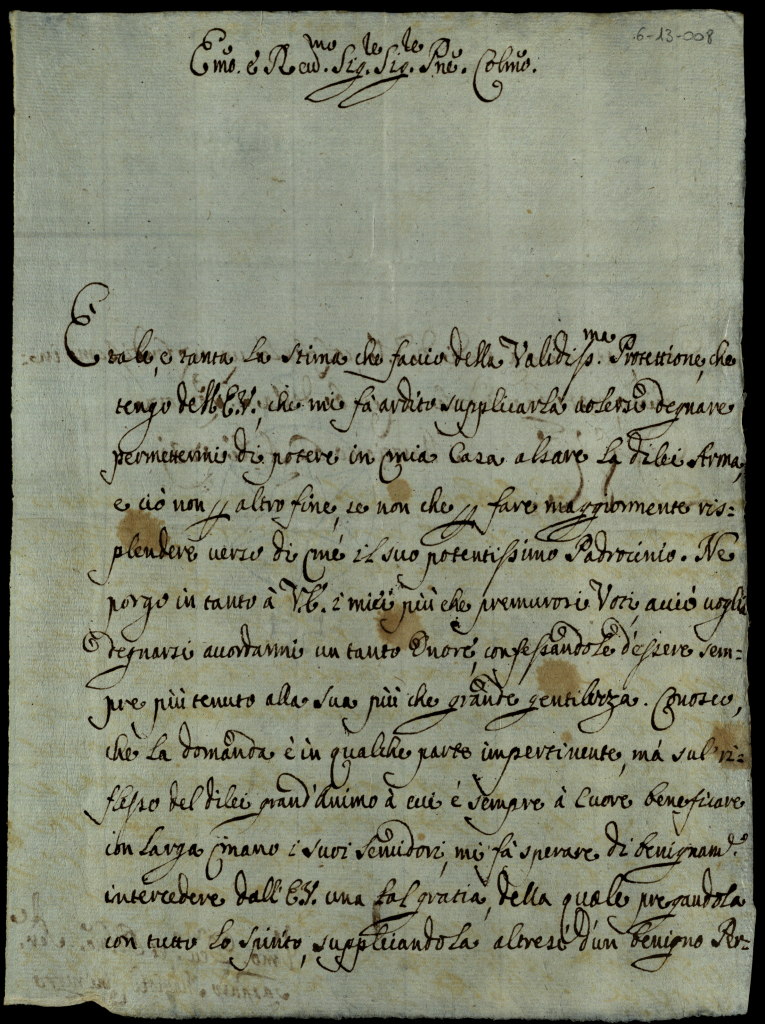 6-13-008
Emo. e Reud.mo Sig.re Sig.re Pne. Colmo.
E tale, e tanta la stima che faccio della Validiss.ma Protettione, che
tengo dell'E.V., che mi fà ardito supplicarla uolersi degnare
permettermi di potere in mia Casa alzare la dilei Arma,
e ciò non p altro fine, se non che p fare maggiormente ris=
plendere uerso di mé il suo potentissimo Padrocinio. Ne
porgo in tanto à V.E. i miei più che premurosi Voti, acciò uoglia
degnarsi accordarmi un tanto Onore, confessandole d'essere sem=
pre più tenuto alla sua più che grande gentilezza. Conosco,
che la domanda è in qualche parte impertinente, má sul ri=
flesso del dilei grand'Animo à cui é sempre à Cuore beneficare
con larga mano i suoi Seruidori, mi fà sperare di benignam.e
intercedere dall'E.V. una tal gratia, della quale pregandola
con tutto lo spirito, supplicandola altresì d'un benigno Per=